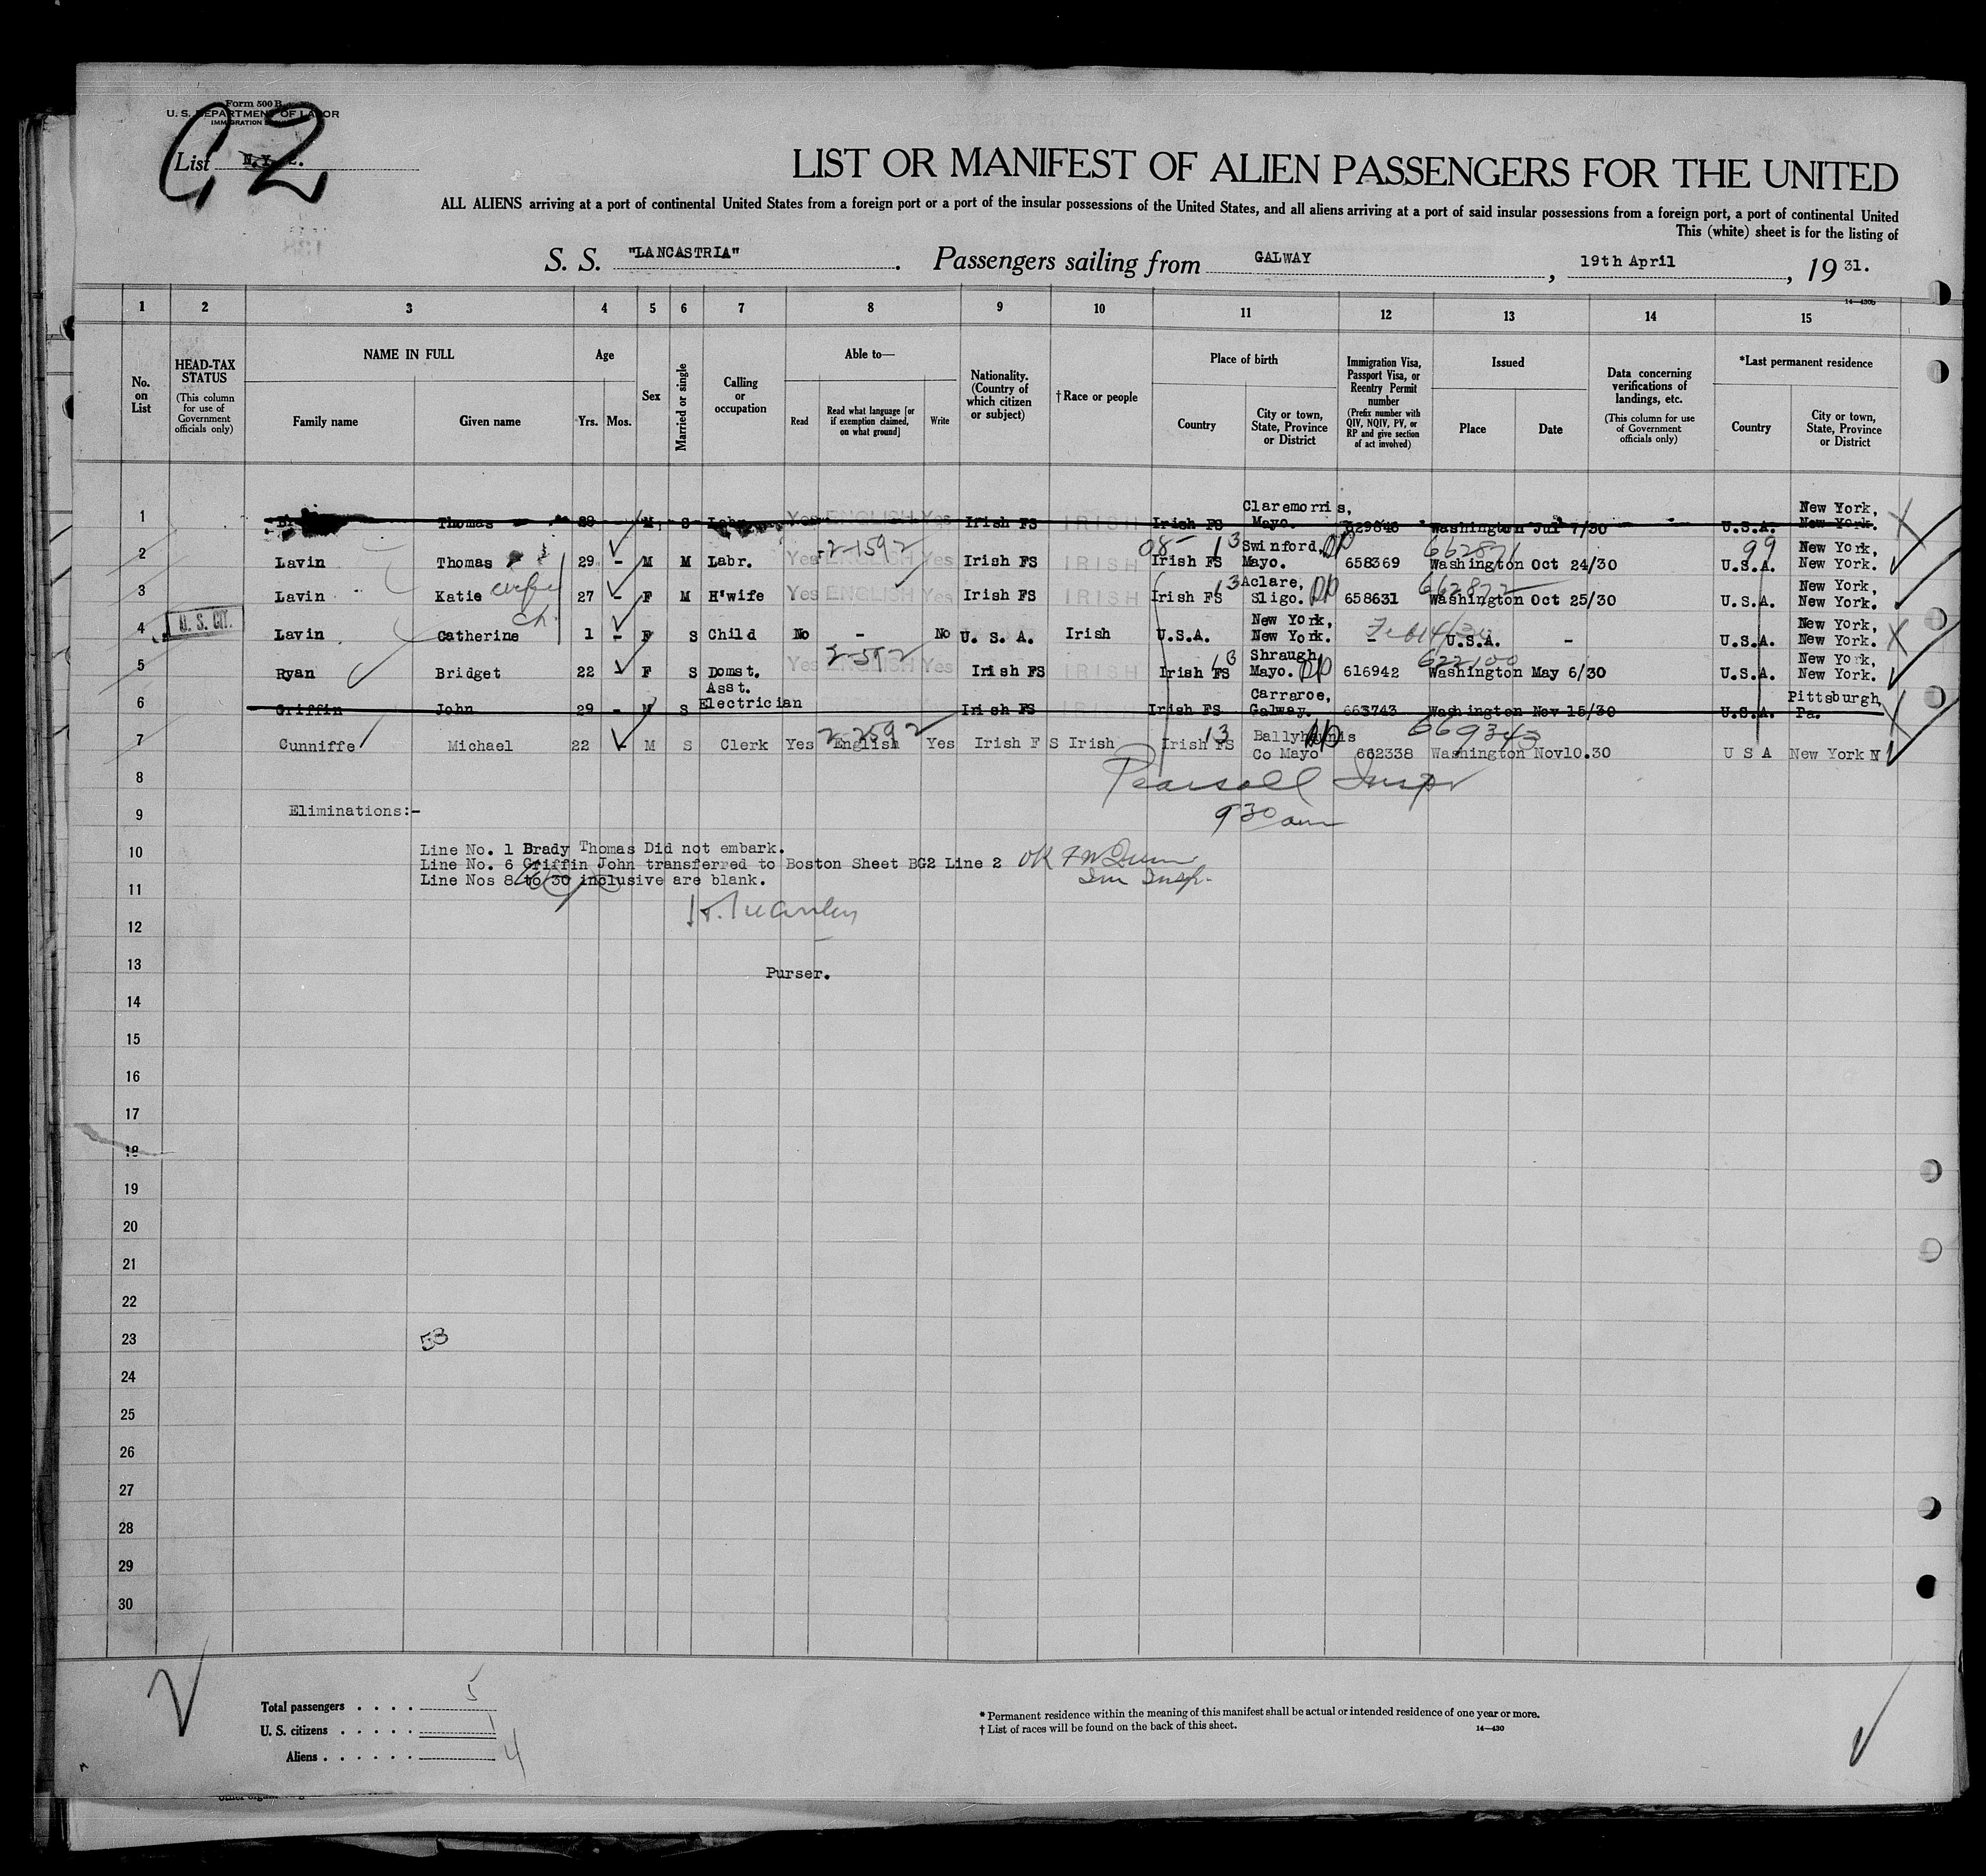 Form 500 B
U. S. DEPARTMENT OF LABOR
IMMIGRATION
C2
List N.Y. 2.
LIST OR MANIFEST OF ALIEN PASSENGERS FOR THE UNITED
ALL ALIENS arriving at a port of continental United States from a foreign port or a port of the insular possessions of the United States, and all aliens arriving at a port of said insular possessions from a foreign port, a port of continental United
This (white) sheet is for the listing of
S. S. "LANCASTRIA" . Passengers sailing from GALWAY , 19th April , 19 31.
14—430b
1 2 3 4 5 6 7 8 9 10 11 12 13 14 15
No. on List
HEAD-TAX STATUS (This column for use of Government officials only)
NAME IN FULL
Family name Given name
Age
Yrs. Mos.
Sex
Married or single
Calling or occupation
Able to—
Read Read what language [or if exemption claimed, on what ground] Write
Nationality. (Country of which citizen or subject)
†Race or people
Place of birth
Country City or town, State, Province or District
Immigration Visa, Passport Visa, or Reentry Permit number (Prefix number with QIV, NQIV, PV, or RP and give section of act involved)
Issued
Place Date
Data concerning verifications of landings, etc. (This column for use of Government officials only)
*Last permanent residence
Country City or town, State, Province or District
1 Thomas 28 M. S Labr. Yes ENGLISH Yes Irish FS IRISH Irish FS Claremorris, Mayo. 629846 Washington Jul 7/30 U.S.A. New York, New York.
2 Lavin Thomas 29 - M M Labr. Yes 2-1592 Yes Irish FS IRISH 08- Irish FS 13 Swinford, Mayo. 658369 662871 Washington Oct 24/30 99 U.S.A. New York, New York.
3 Lavin Katie wife 27 - F M H'wife Yes ENGLISH Yes Irish FS IRISH Irish FS 13 Aclare, Sligo. 658631 662872 Washington Oct 25/30 U.S.A. New York, New York.
4 U. S. CIT. Lavin Catherine ch. 1 - F S Child No - No U. S. A. Irish U.S.A. New York, New York. - U.S.A. - U.S.A. New York, New York.
5 Ryan Bridget 22 - F S Domst. Yes 2-592 Yes Irish FS IRISH Irish FS 13 Shraugh, Mayo. 616942 622100 Washington May 6/30 U.S.A. New York, New York.
6 Griffin John 29 - M S Asst. Electrician Irish FS Irish FS Carraroe, Galway. 663743 Washington Nov 15/30 U.S.A. Pittsburgh, Pa.
7 Cunniffe Michael 22 - M S Clerk Yes 2-2592 English Yes Irish F S Irish Irish FS 13 Ballyhaunis Co Mayo 662338 669343 Washington Nov10.30 U S A New York N
8 Pearsall Inspr
9 Eliminations:- 9 30 am
10 Line No. 1 Brady Thomas Did not embark.
Line No. 6 Griffin John transferred to Boston Sheet BG2 Line 2 OK
11 Line Nos 8 to 30 inclusive are blank. Imm Insp.
12
13 Purser.
14
15
16
17
18
19
20
21
22
23 53
24
25
26
27
28
29
30
Total passengers . . . . 5
U. S. citizens . . . . . 1
Aliens . . . . . . 4
* Permanent residence within the meaning of this manifest shall be actual or intended residence of one year or more.
† List of races will be found on the back of this sheet.
14—430